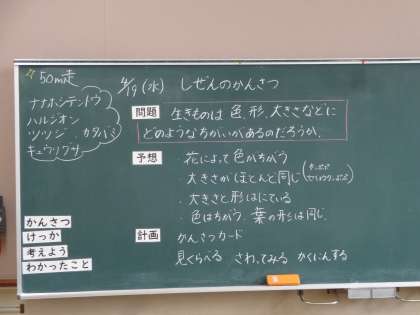 ☆50m走
ナナホシテントウ
ハルシオン
ツツジ カタバミ
キュウリグサ
4/19(水) しぜんのかんさつ
問題 生きものは 色、形、大きさなどに
どのようなちがいがあるのだろうか。
予想 ・花によって色がちがう
・大きさがほとんど同じ
・大きさと形はにている
・色はちがう、葉の形は同じ
計画 かんさつカード
見くらべる さわってみる かくにんする
かんさつ
けっか
考えよう
わかったこと